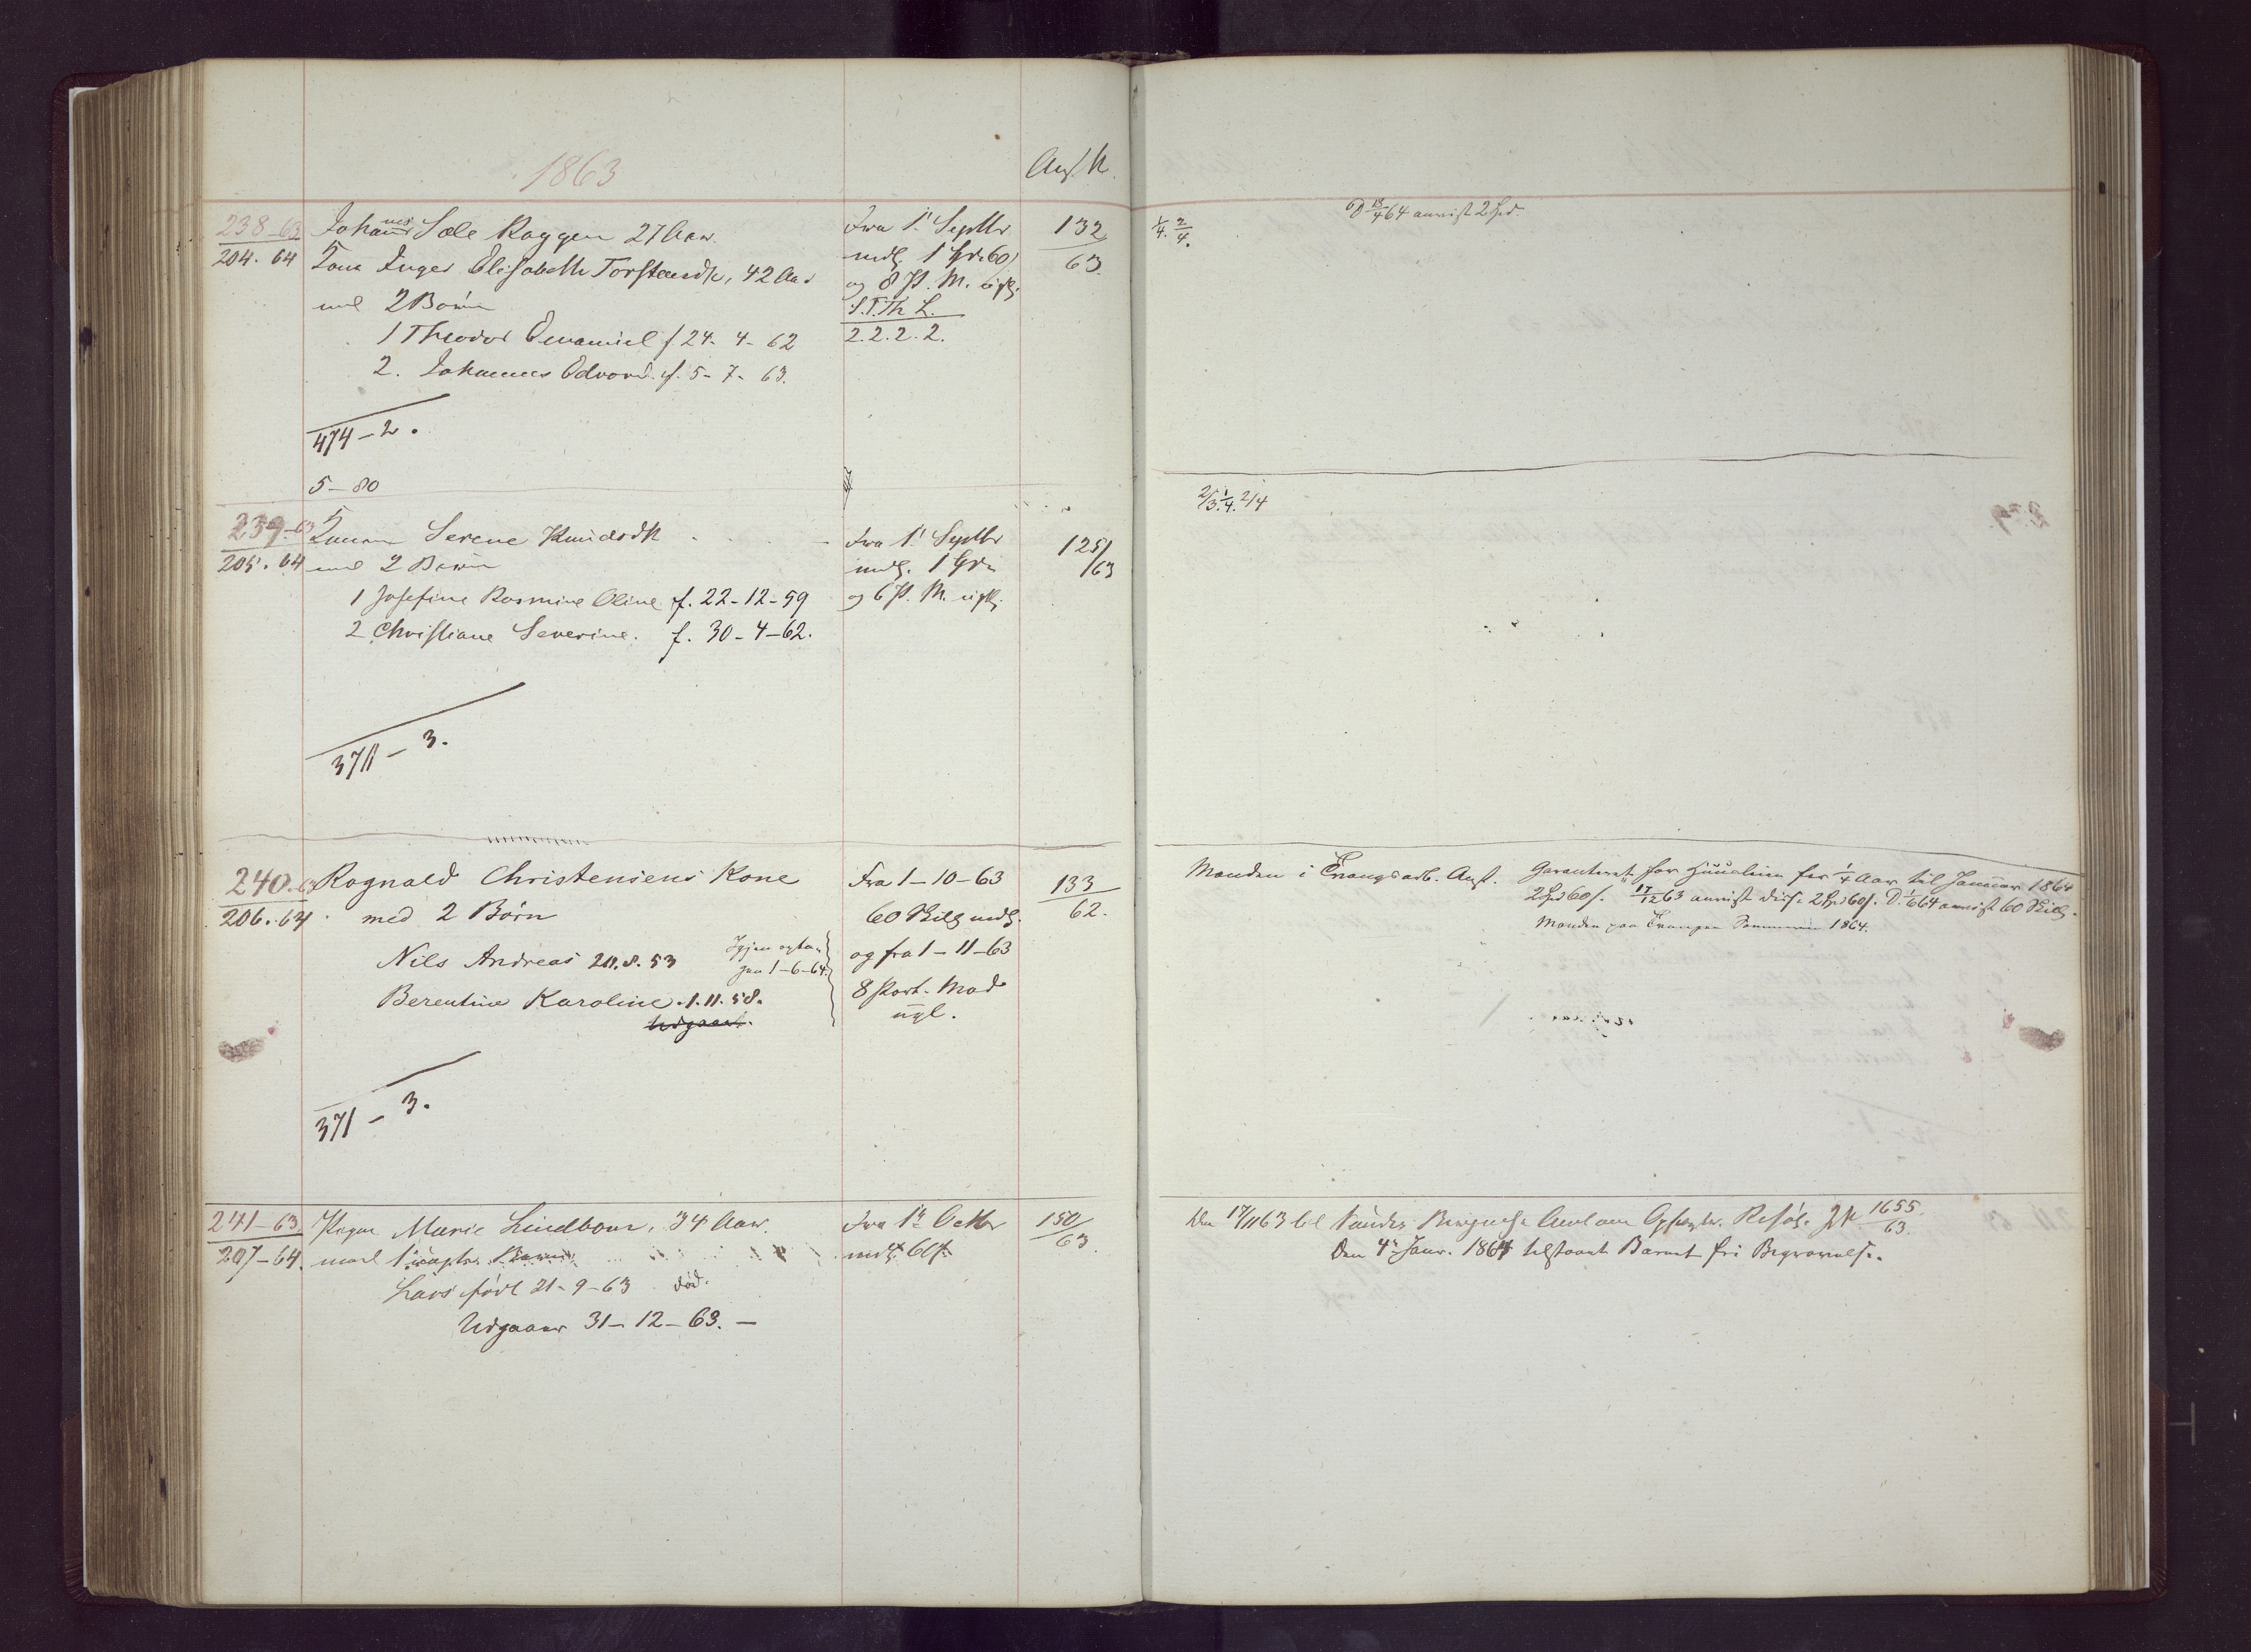 1863
238-63
204. 64
Johannes Sæle Roggen 27 Aar
Inger Elisabeth Torstensdr, 42 Aar
med 2 Børn
1 Theodor Emanuel f 24-4-62
2. Johannes Edvard f. 5-7-63.
474-2.
5-80
Fra 1 Septbr
mdl. 1 Spd. 60
og 8 P. M. ugtl.
S.T.Th L.
2.2.2.2.
132
63
1/4. 2/4.
D 13/4 64 anvist 2 Spd.
239-63
205. 64
Serene Knudsdtr
med 2 Børn
1 Josefine Rasmine Oline f. 22-12-59
2 Christiane Severine. f. 30-4-62.
371-3.
Fra 1 Septbr
mdl. 1 Spd
og 6 P. M. ugtl.
125/63
2/3. 1/4. 2/4
240-63
206. 64
Ragnald Christensens Kone
med 2 Børn
Nils Andreas 20.8.53
Igjen optan
fra 1-6-64.
Berentine Karoline. 1.11.58.
Udgaaet.
371-3.
Fra 1-10-63
60 Skilg mdl.
og fra 1-11-63
8 Port. Mad
ugl.
133
62.
Manden i Tvangsarb. Anst.
Garanteret for Huusleien for 1/4 Aar til Januar 1864
2 Spd 60 s. 17/12 63 anvist disse 2 Spd 60 s. D. 1/6 64 anvist 60 Skilg.
Manden paa Tvangen Sommeren 1864.
241-63.
207-64.
Pigen Marie Lindbom, 34 Aar.
med 1 Barn
Lars født 21-9-63 død.
Udgaaer 31-12-63. -
Fra 1 Octbr
mdl. 60 s.
150/63
Den 17/11 63 til Søndre Bergenhs Amt om Resol. 1655/63.
Den 4 Janr. 1864 tilstaaet Barnet fri Begravelse.